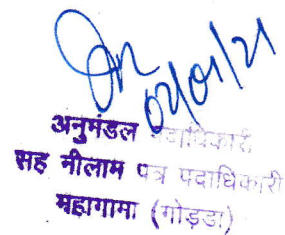 02/01/21
अनुमंडल पदाधिकारी
सह नीलाम पत्र पदाधिकारी
महागामा (गोड्डा)